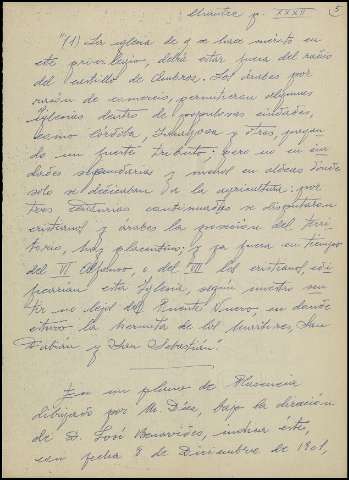 p. XXXII 5
"(1) La iglesia de q se hace mérito en
este privilegio, debió estar fuera del radio
del castillo de Ambroz. Los árabes por
razón de comercio, permitieron algunas
iglesias dentro de populosas ciudades,
como Córdoba, Zaragoza y otras, pagan
do un fuerte tributo; pero no en ciu
dades secundarias y menos en aldeas donde
solo se dedicaban a la agricultura: por
tres centurias continuadas se disputaron
cristianos y árabes la posesión del terri
torio, hoy placentino; y ya fuera en tiempo
del VI Alfonso, o del VIII los cristianos,
esta Iglesia, según nuestro sen
tir no lejos del Puente Nuevo, en donde
estuvo la hermita de los Mártires, San
Fabián y San Sebastián".
En un plano de Plasencia
dibujado por M. Díaz, bajo la dirección
de D. José Benavides, indica este,
con fecha 8 de Diciembre de 1901,